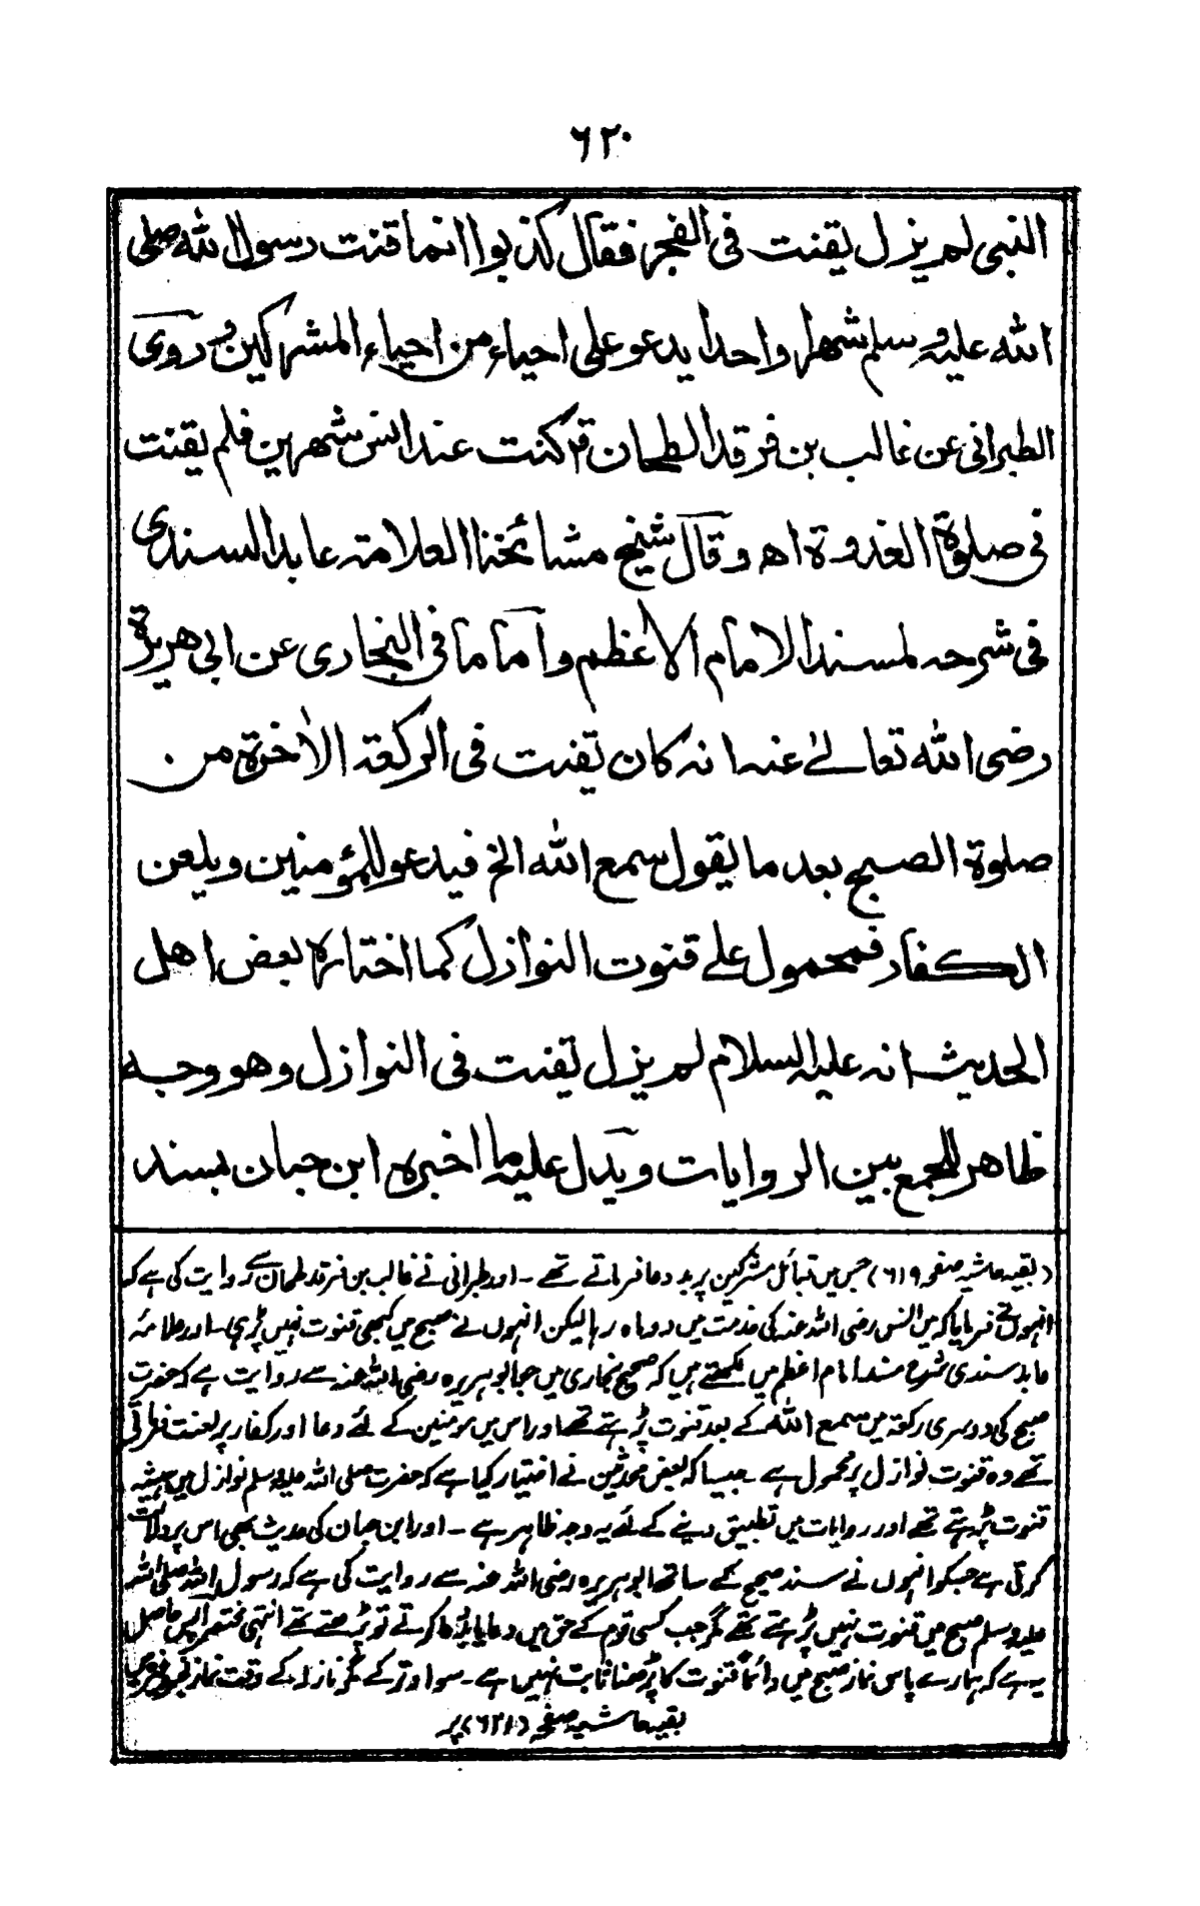 ٦٢٠
النبی لم یزل یقنت فی الفجر فقال کذبوا انما قنت رسول الله صلی
الله علیه وسلم شهرا واحدا یدعو علی احیاء من احیاء المشرکین وروی
الطبرانی عن غالب بن فرقد الطحان ق کنت عند انس شهرین فلم یقنت
فی صلوة الغدوة اه وقال شیخ مشائخنا العلامة عابد السندی
فی شرحه لمسند الامام الاعظم واما ما فی البخاری عن ابی هریرة
رضی الله تعالیٰ عنه انه کان یقنت فی الرکعة الاٰخرة من
صلوة الصبح بعد ما یقول سمع الله الخ فیدعو للمؤمنین ویلعن
الکفار فمحمول علی قنوت النوازل کما اختاره بعض اهل
الحدیث انه علیه السلام لم یزل یقنت فی النوازل وهو وجه
ظاهر للجمع بین الروایات ویدل علیه ما اخبره ابن حبان بسند
(بقیہ حاشیہ صفحہ ٦١٩) جس میں قبائل مشرکین پر بد دعا فرماتے تھے ۔ اور طبرانی نے غالب بن فرقد طحان سے روایت کی ہے کہ
انہوں نے فرمایا کہ میں انس رضی اللہ عنہ کی خدمت میں دو ماہ رہا لیکن انہوں نے صبح میں کبھی قنوت نہیں پڑھی ۔ اور علامہ
عابد سندی شرح مسند امام اعظم میں لکھتے ہیں کہ صحیح بخاری میں جو ابوہریرہ رضی اللہ عنہ سے روایت ہے کہ حضرت
صبح کی دوسری رکعت میں سمع اللہ کے بعد قنوت پڑہتے تھے اور اس میں مومنین کے لئے دعا اور کفار پر لعنت فرماتے
تھے وہ قنوت نوازل پر محمول ہے ۔ جیسا کہ بعض محدثین نے اختیار کیا ہے کہ حضرت صلی اللہ علیہ وسلم نوازل میں ہمیشہ
قنوت پڑہتے تھے اور روایات میں تطبیق دینے کے لئے یہ وجہ ظاہر ہے ۔ اور ابن حبان کی حدیث بھی اس پر دلالت
کرتی ہے جسکو انہوں نے سند صحیح کے ساتھ ابوہریرہ رضی اللہ عنہ سے روایت کی ہے کہ رسول اللہ صلی اللہ
علیہ وسلم صبح میں قنوت نہیں پڑہتے تھے مگر جب کسی قوم کے حق میں دعا یا بد دعا کرتے تو پڑہتے تھے انتہی مختصرا پس حاصل
یہ ہے کہ ہمارے پاس نماز صبح میں دائماً قنوت کا پڑھنا ثابت نہیں ہے ۔ سوا وتر کے مگر نازلہ کے وقت نماز فجر
بقیہ حاشیہ صفحہ (٦٢١) پر